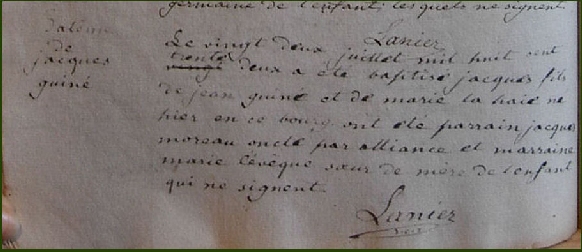 germaine de l'enfant, lesquels ne signent.
Lanier
Batême
de
jacques
guiné
Le vingt deux juillet mil huit cent
trente deux a été baptisé jacques fils
de jean guiné et de marie la haie né
hier en ce bourg, ont été parrain jacque
moreau oncle par alliance et marraine
marie levêque sœur de mère de l'enfant
qui ne signent.
Lanier